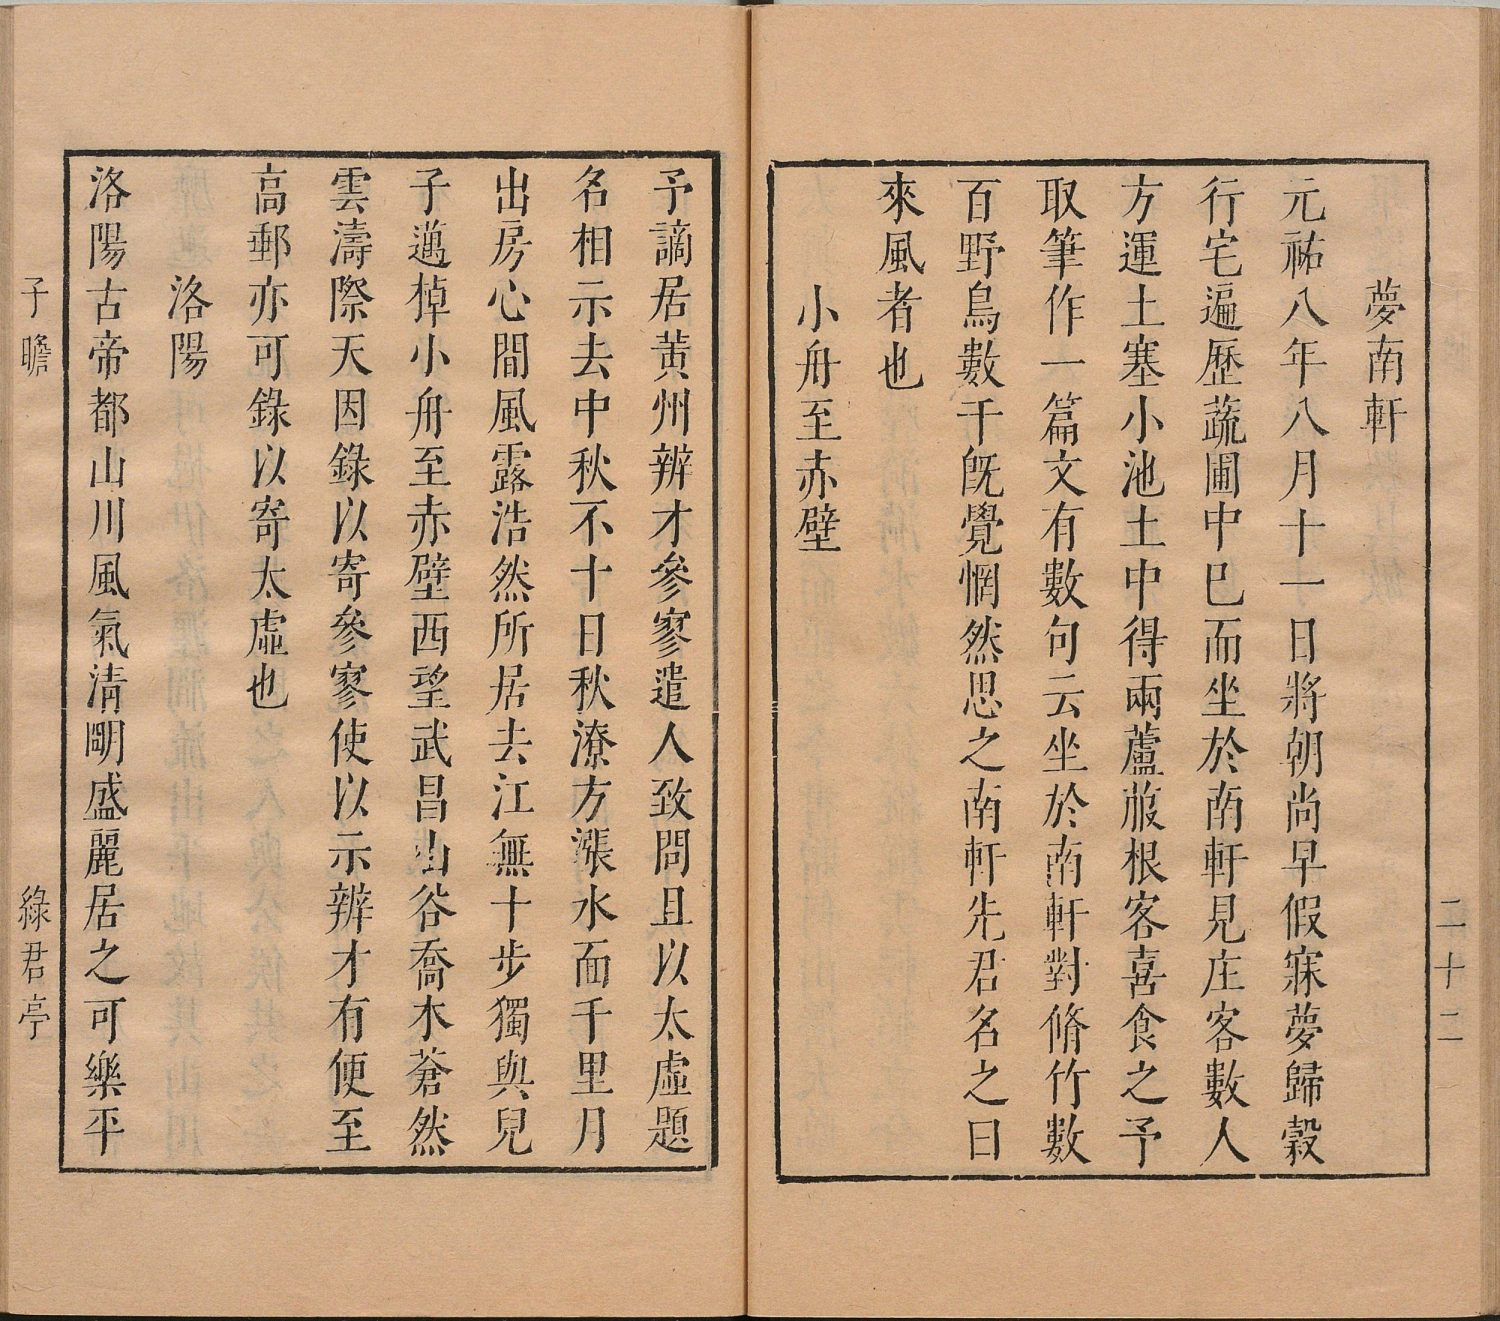 夢南軒
元祐八年八月十一日將朝尚早假寐夢歸穀
行宅遍歷蔬圃中已而坐於南軒見庄客數人
方運土塞小池土中得兩蘆菔根客喜食之予
取筆作一篇文有數句云坐於南軒對脩竹數
百野鳥數千旣覺惘然思之南軒先君名之曰
來風者也
小舟至赤壁
二十二
予謫居黃州辨才參寥遣人致問且以太虛題
名相示去中秋不十日秋潦方漲水面千里月
出房心間風露浩然所居去江無十步獨與兒
子邁棹小舟至赤壁西望武昌山谷喬木蒼然
雲濤際天因錄以寄參寥使以示辨才有便至
高郵亦可錄以寄太虛也
洛陽
洛陽古帝都山川風氣清明盛麗居之可樂平
子瞻
綠君亭